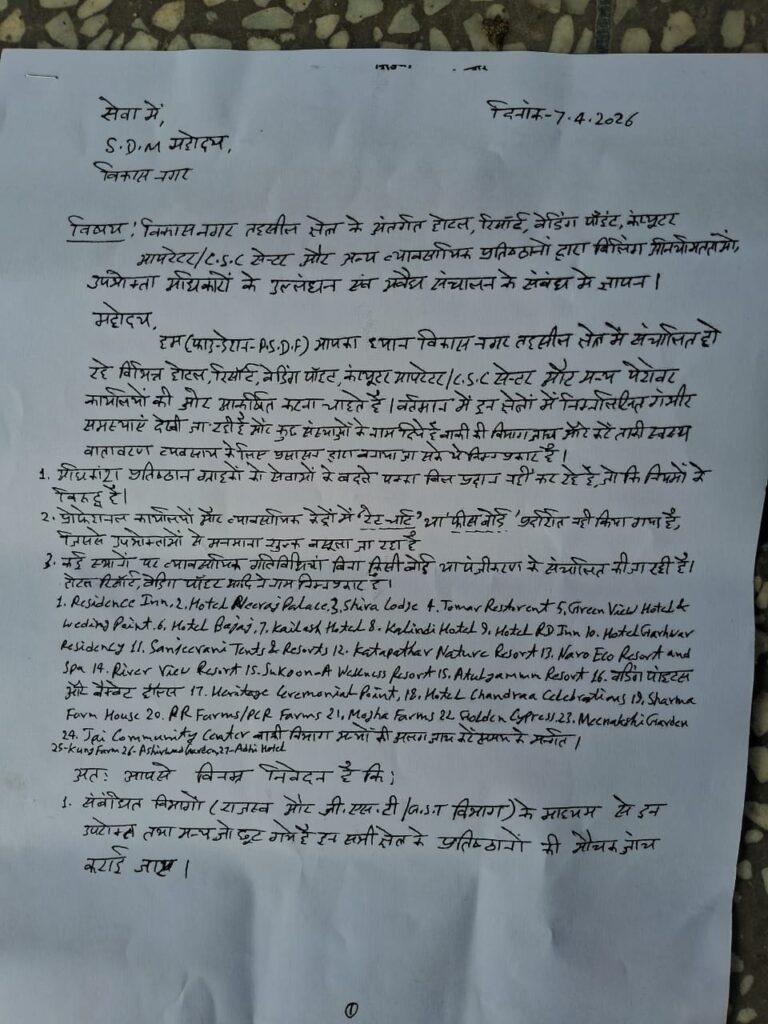 सेवा में,
दिनांक-7.4.2026
S.D.M महोदय,
विकास नगर
विषय: विकासनगर तहसील क्षेत्र के अंतर्गत होटल, रिसॉर्ट, वेडिंग पॉइंट, कंप्यूटर
आपरेटर/C.S.C सेन्टर और अन्य व्यावसायिक प्रतिष्ठानों द्वारा बिलिंग अनियमितताओं,
उपभोक्ता अधिकारों के उल्लंघन एवं अवैध संचालन के संबंध मे ज्ञापन।
महोदय,
हम(फाउन्डेशन-P.S.D.F) आपका ध्यान विकास नगर तहसील क्षेत्र में संचालित हो
रहे विभिन्न होटल, रिसॉर्ट, वेडिंग पॉइंट, कंप्यूटर आपरेटर/C.S.C सेन्टर और अन्य पेशेवर
कार्यालयों की ओर आकर्षित करना चाहते है। वर्तमान में इन क्षेत्रों में निम्नलिखित गंभीर
समस्याएं देखी जा रही है और कुछ संस्थाओं के नाम दिये है बाकी की विभाग जांच और करें ताकी स्वस्थ
वातावरण व्यवसाय के लिए प्रशासन द्वारा बनाया जा सके ये निम्न प्रकार है।
1. अधिकांश प्रतिष्ठान ग्राहकों को सेवाओं के बदले पक्का बिल प्रदान नहीं कर रहे है, जो कि नियमों के
विरुद्ध है।
2. प्रोफेशनल कार्यालयों और व्यावसायिक केंद्रों में 'रेट चार्ट' या 'फीस बोर्ड' प्रदर्शित नहीं किया गया है,
जिससे उपभोक्ताओं से मनमाना शुल्क वसूला जा रहा है
3. कई स्थानों पर व्यावसायिक गतिविधियां बिना किसी बोर्ड या पंजीकरण के संचालित की जा रही है।
होटल रिसॉर्ट, वेडिंग पॉइंट आदि के नाम निम्न प्रकार है।
1. Residence Inn, 2. Hotel Neeraj Palace, 3, Shiva Lodge 4. Tomar Restorent 5, Green View Hotel &
Weding Point. 6, Hotel Bajaj, 7. Kailash Hotel 8. Kalindi Hotel 9. Hotel RD Inn 10. Hotel Garhwar
Residency 11. Sanjeevani Tents & Resorts 12. Katapathar Nature Resort 13. Navo Eco Resort and
Spa 14. River View Resort 15. Sukoon-A Wellness Resort 15. Atulyamun Resort 16. वेडिंग पॉइंटस
और बैंक्वेट हॉल्स 17. Heritage Ceremonial Point, 18. Hotel Chandraa Celebrations 19. Sharma
Farm House 20. RR Farms/PCR Farms 21, Mojha Farms 22 Golden Cypress. 23. Meenakshi Garden
24. Jai Community Center बाकी विभाग अन्यों की अलग जांच करें के अन्तर्गत।
25-Kunj Farm 26-Ashirwad Garden, 27-Adhi Hotel
अतः आपसे विनम्र निवेदन है कि;
1. संबंधित विभागों (राजस्व और जी.एस.टी/G.S.T विभाग) के माध्यम से इन
उपरोक्त तथा अन्य जो छूट गये है इन सभी क्षेत्र के प्रतिष्ठानों की औचक जांच
कराई जाए।
1